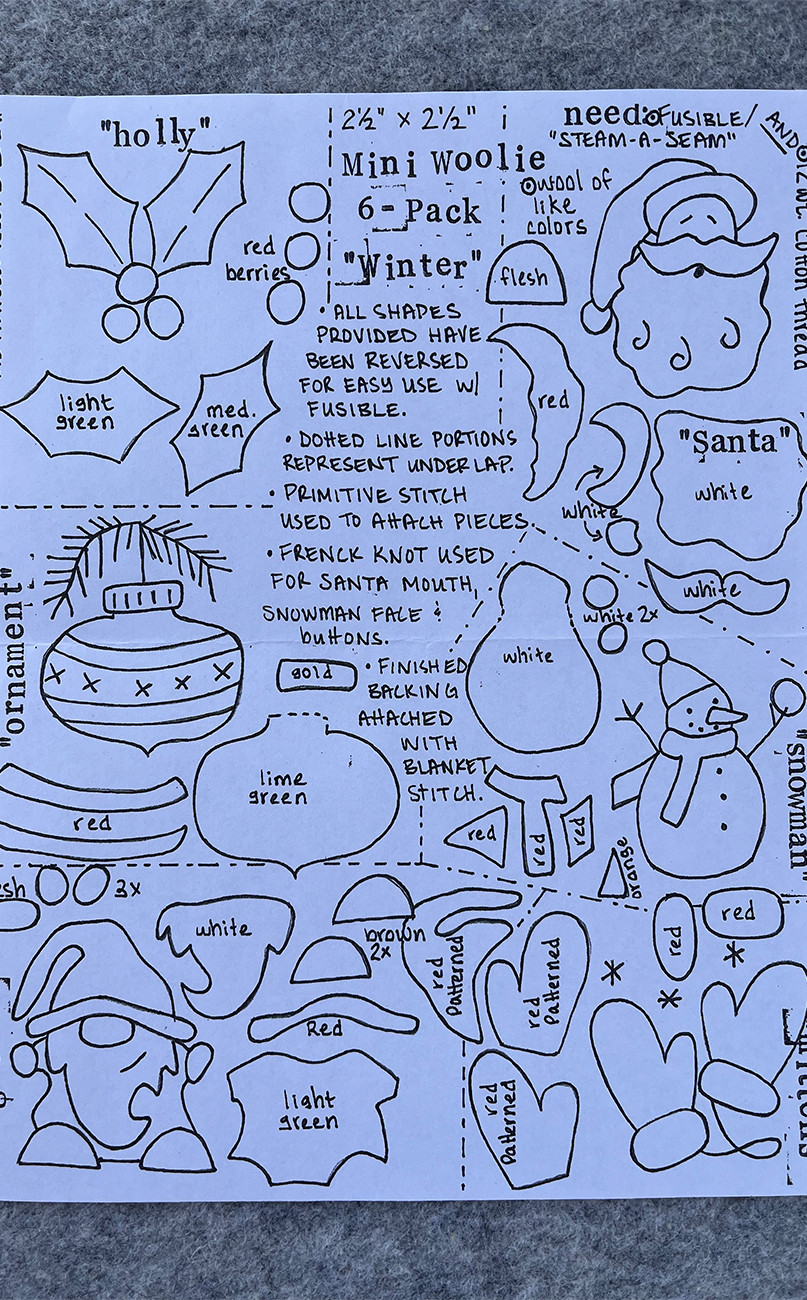 "holly"
red
berries
light
green
med.
green
2½" x 2½"
Mini Woolie
6-Pack
"Winter"
• ALL SHAPES
PROVIDED HAVE
BEEN REVERSED
FOR EASY USE W/
FUSIBLE.
• DOTTED LINE PORTIONS
REPRESENT UNDERLAP.
• PRIMITIVE STITCH
USED TO ATTACH PIECES.
• FRENCK KNOT USED
FOR SANTA MOUTH,
SNOWMAN FACE &
BUTTONS.
• FINISHED
BACKING
ATTACHED
WITH
BLANKET
STITCH.
need: FUSIBLE/
"STEAM-A-SEAM"
AND
#12 wt. cotton thread
wool of
like
colors
flesh
red
white
"Santa"
white
white
"ornament"
gold
lime
green
red
white
white 2x
red
red
red
orange
"snowman"
3x
white
brown
2x
red
Patterned
Red
light
green
red
Patterned
red
Patterned
red
red